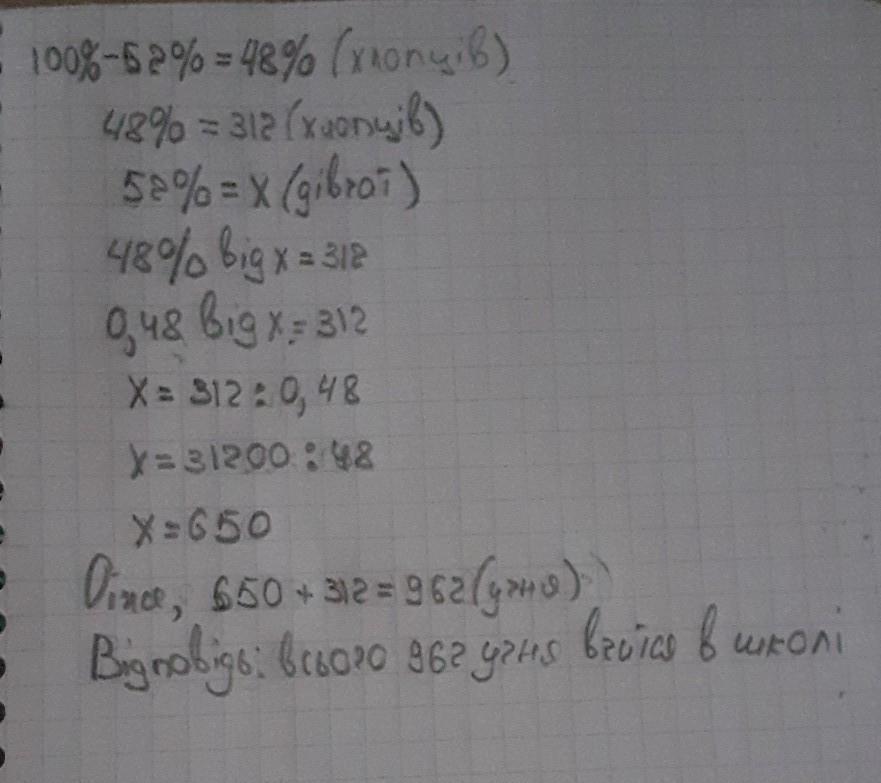 100%-52%=48% (хлопців)
48%=312(хлопців)
52%=х(дівчат)
48% від х=312
0,48 від х=312
х=312:0,48
х=31200:48
х=650
Отже, 650+312=962(учня)
Відповідь: всього 962 учня вчится в школі